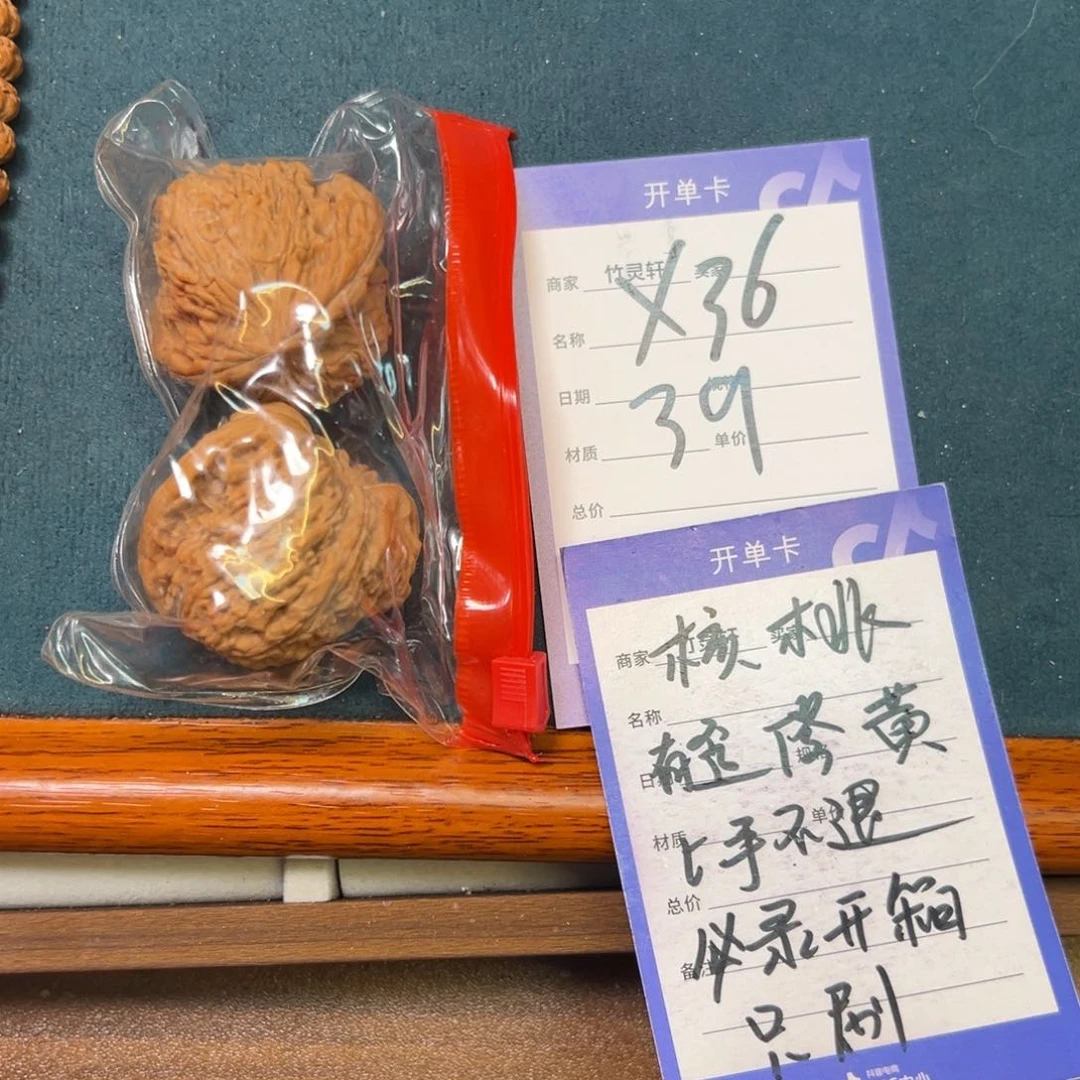 开单卡
商家 竹灵轩 买家
X36
名称
日期
39
材质 单价
总价
开单卡
商家
核桃
名称
黄
材质 单价
上手不退
总价
备注
必录开箱
只刷
抖音电商